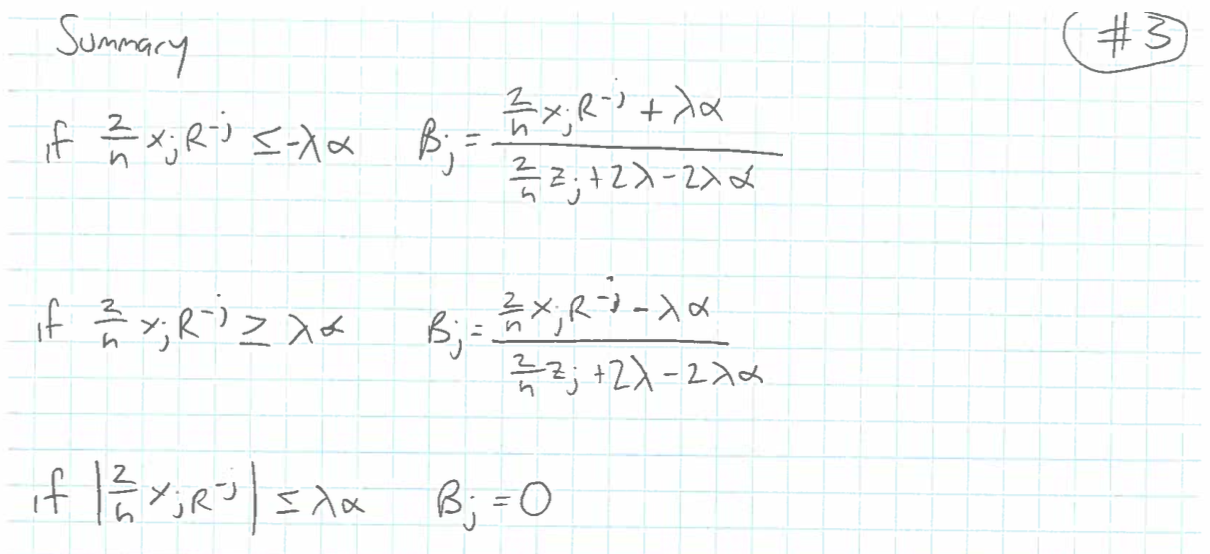 Summary #3
if $\frac{2}{n} x_j R^{-j} \leq -\lambda\alpha$ $\beta_j = \frac{\frac{2}{n} x_j R^{-j} + \lambda\alpha}{\frac{2}{n} z_j + 2\lambda - 2\lambda\alpha}$
if $\frac{2}{n} x_j R^{-j} \geq \lambda\alpha$ $\beta_j = \frac{\frac{2}{n} x_j R^{-j} - \lambda\alpha}{\frac{2}{n} z_j + 2\lambda - 2\lambda\alpha}$
if $\left|\frac{2}{n} x_j R^{-j}\right| \leq \lambda\alpha$ $\beta_j = 0$